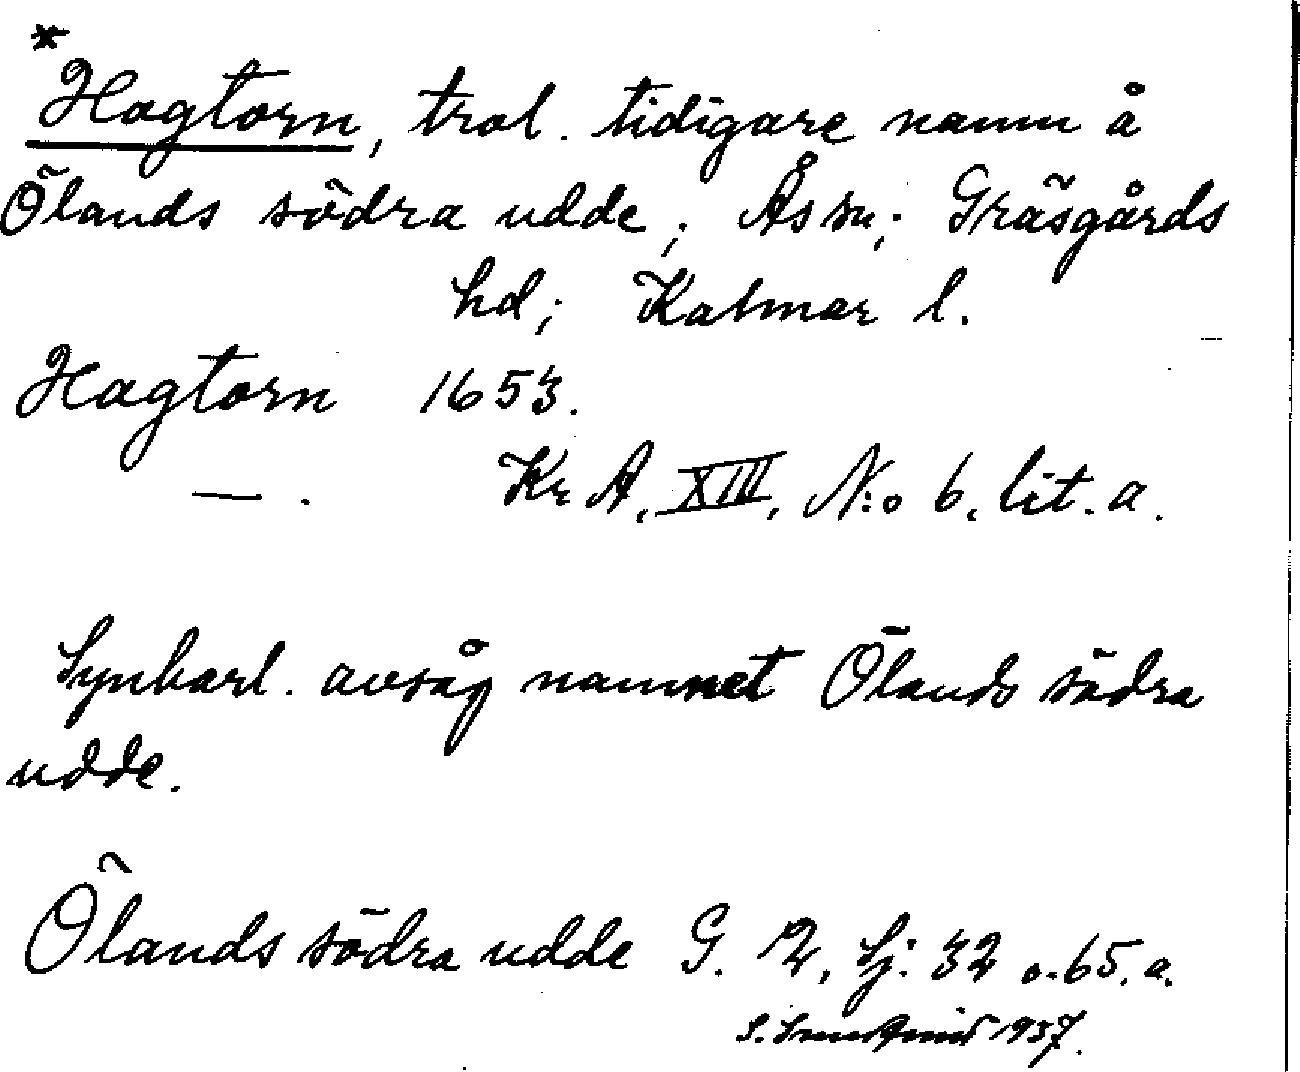 *
Hagtorn, trol. tidigare namn å
Ölands södra udde; Ås sn; Gräsgårds
hd; Kalmar l.
Hagtorn 1653.
— . Kr A, XIII, N:o 6, lit. a.
Synbarl. avsåg namnet Ölands södra
udde.
Ölands södra udde G. 12, Sj: 32 o. 65. a.
S. 1937.